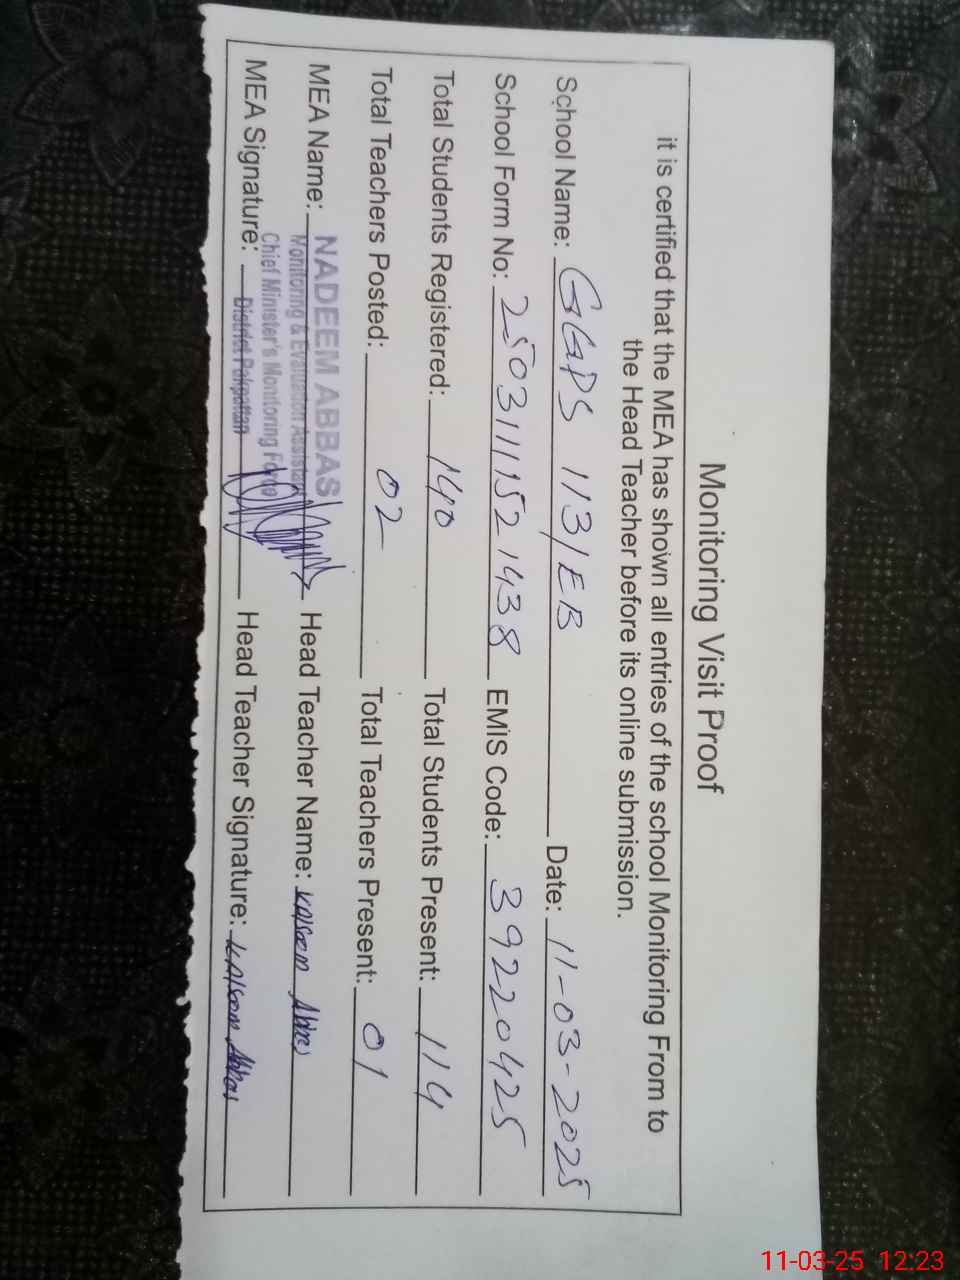 Monitoring Visit Proof
it is certified that the MEA has shown all entries of the school Monitoring From to
the Head Teacher before its online submission.
School Name: GGPS 113/EB Date: 11-03-2025
School Form No: 2503111521438 EMIS Code: 39220425
Total Students Registered: 140 Total Students Present: 114
Total Teachers Posted: 02 Total Teachers Present: 01
MEA Name: NADEEM ABBAS Head Teacher Name: Kalsoom Abbas
Monitoring & Evaluation Assistant
Chief Minister's Monitoring Force
MEA Signature: District Pakpattan Head Teacher Signature: Kalsoom Abbas
11-03-25 12:23